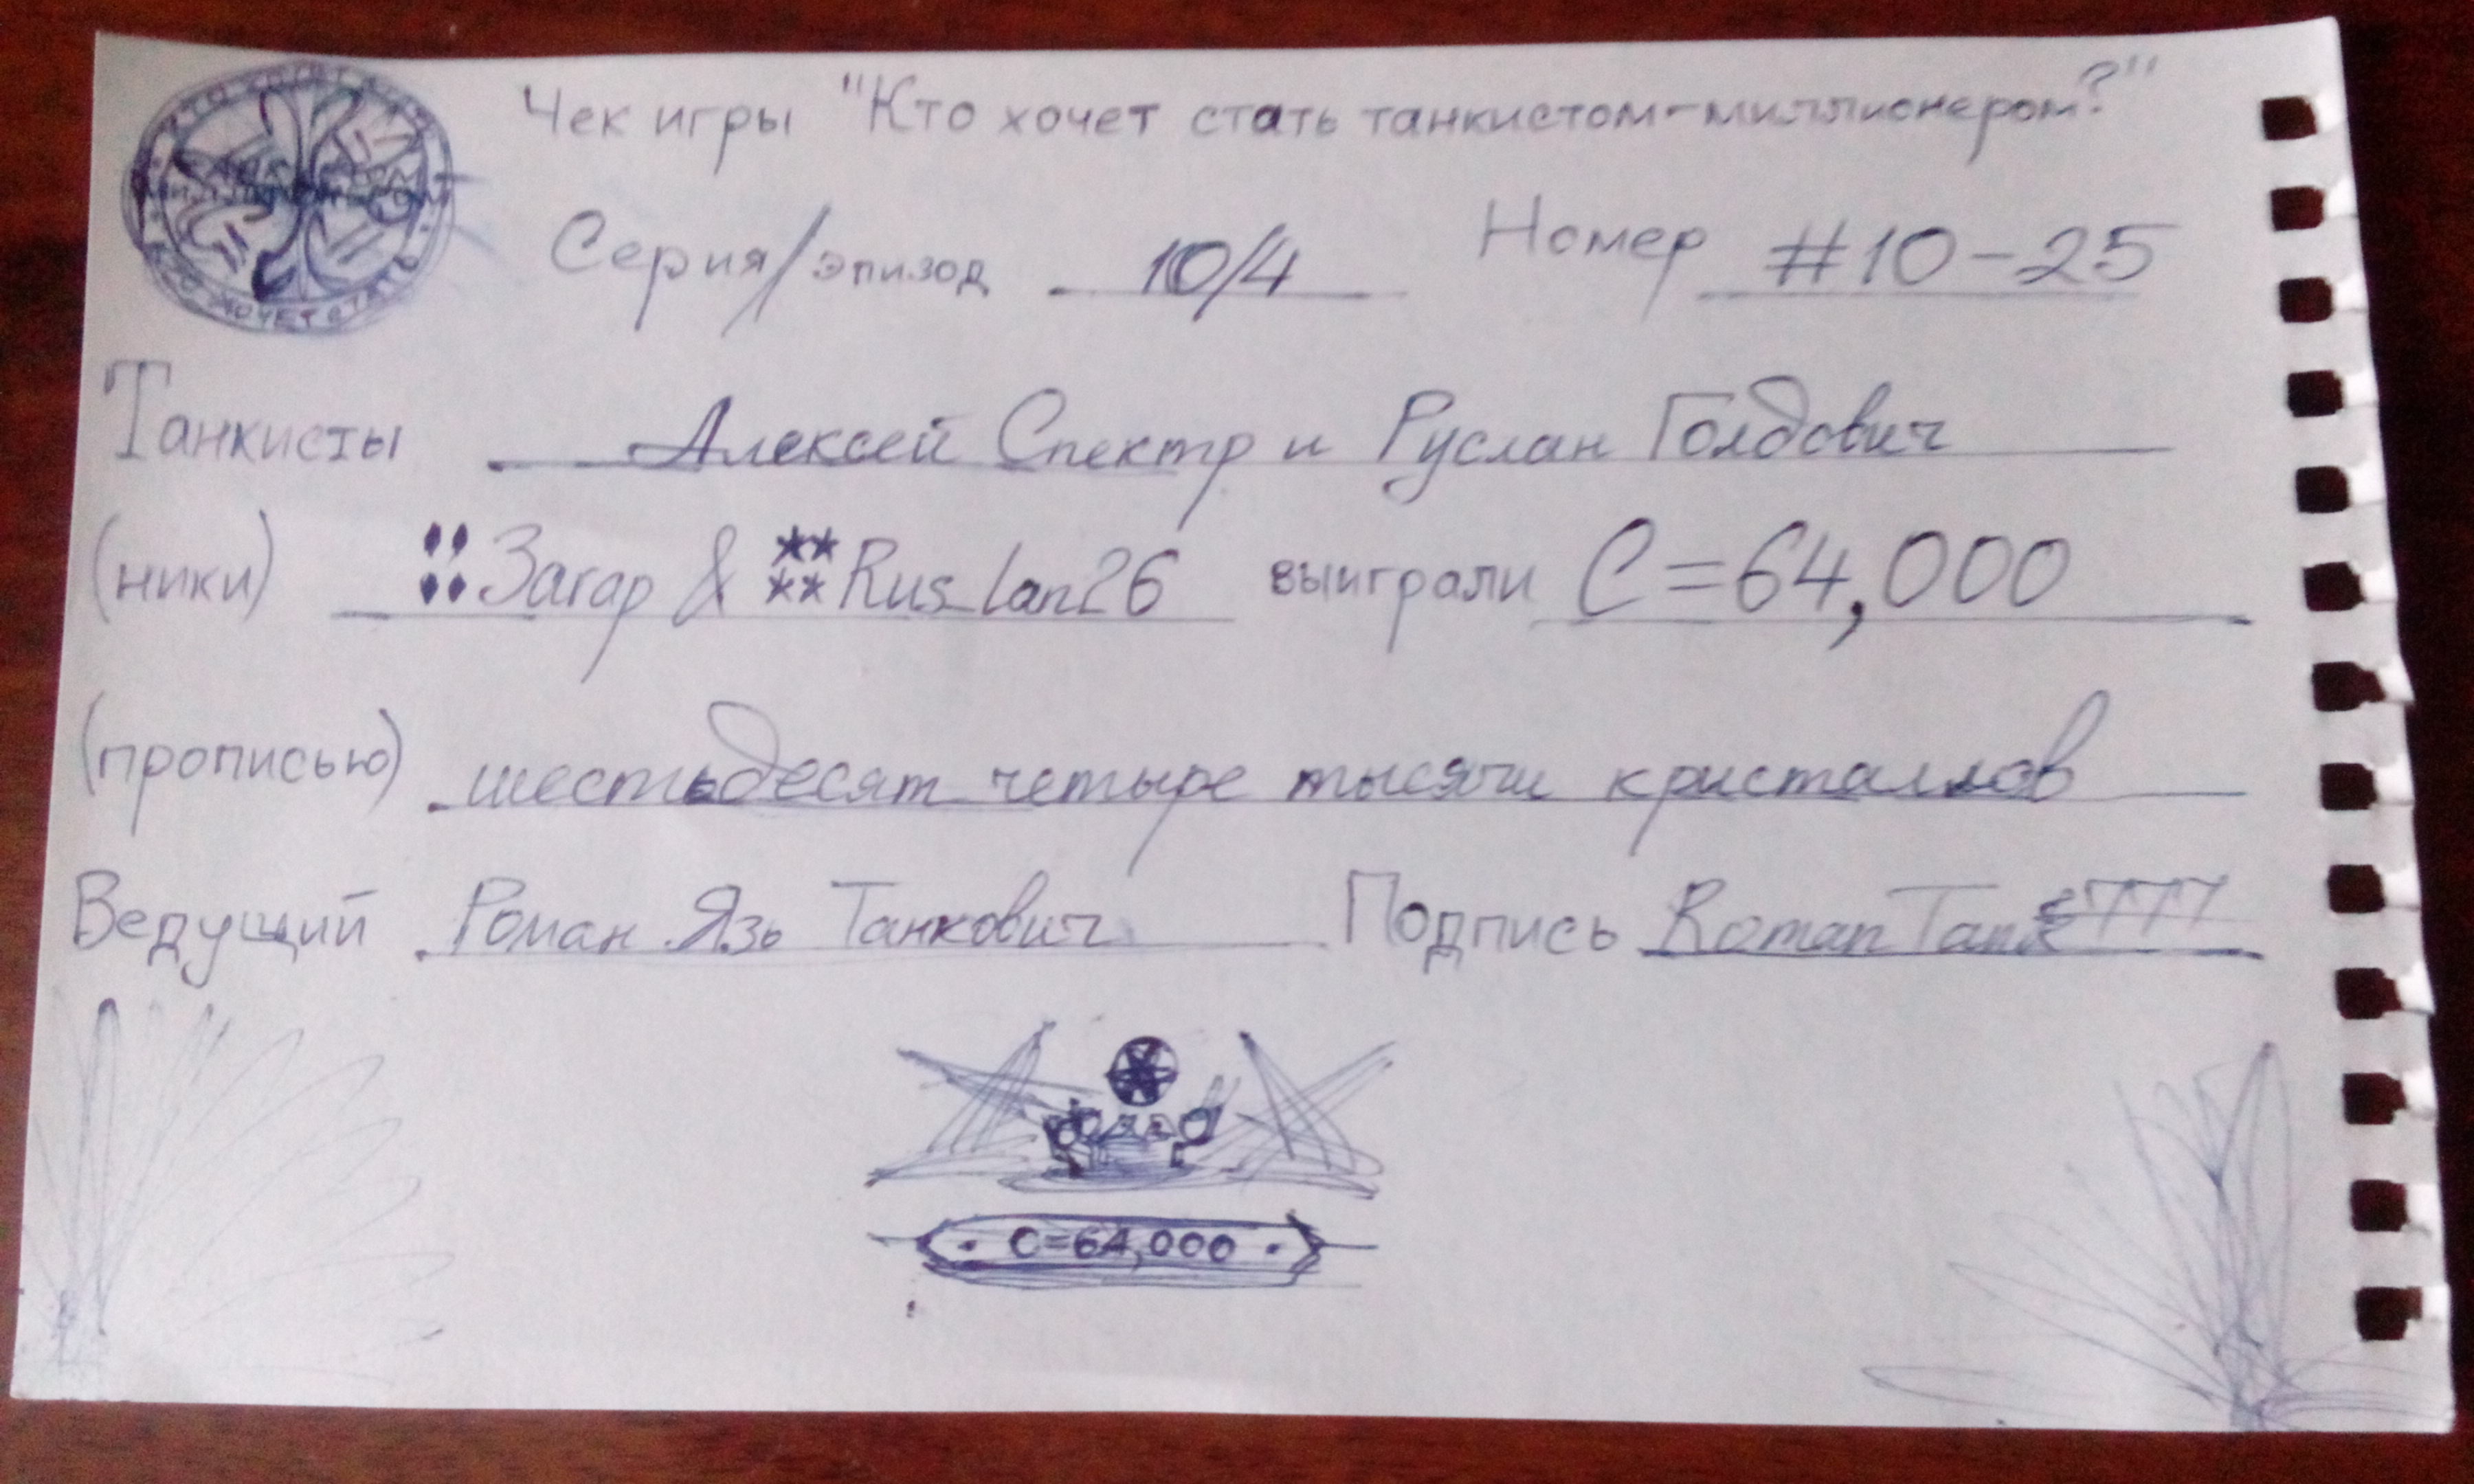 Чек игры "Кто хочет стать танкистом-миллионером?"
КТО ХОЧЕТ СТАТЬ
ТАНКИСТОМ
МИЛЛИОНЕРОМ
КТО ХОЧЕТ СТАТЬ
Серия/эпизод 10/4 Номер #10-25
Танкисты Алексей Спектр и Руслан Голдович
(ники) Загар & Rus_lan26 выиграли C=64,000
(прописью) шестьдесят четыре тысячи кристаллов
Ведущий Роман Язь Танкович Подпись RomanTank777
C=64,000